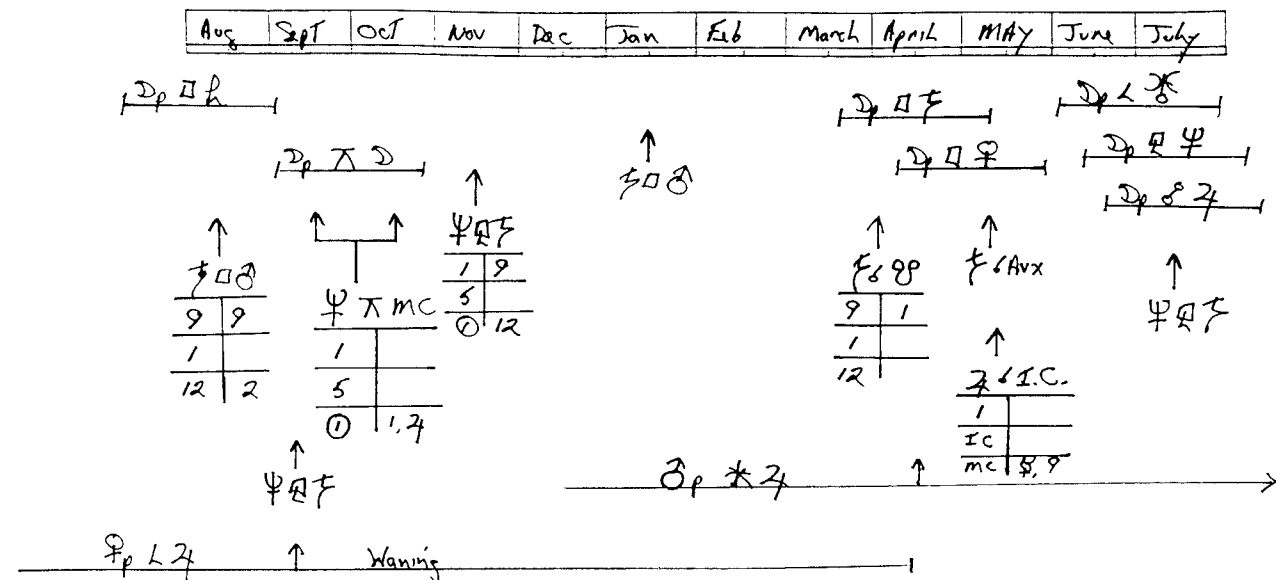 Aug Sept Oct Nov Dec Jan Feb March April May June July
☽p □ ♄
☽p □ ♄
☽p ∠ ♅
☽p ⚻ ☽
☽p □ ♀
☽p ⚼ ♆
♄ □ ♂
☽p ☍ ♃
♆ ⚼ ♄
1 9
5
① 12
♄ □ ♂
9 9
1
12 2
♆ ⚻ MC
1
5
① 1,♃
♄ ☌
9 1
1
12
♄ ☌ Avx
♆ ⚼ ♄
♃ ☌ I.C.
1
IC
MC 9
♆ ⚼ ♄
♂p ⚹ ♃
♀p ∠ ♃ Waning